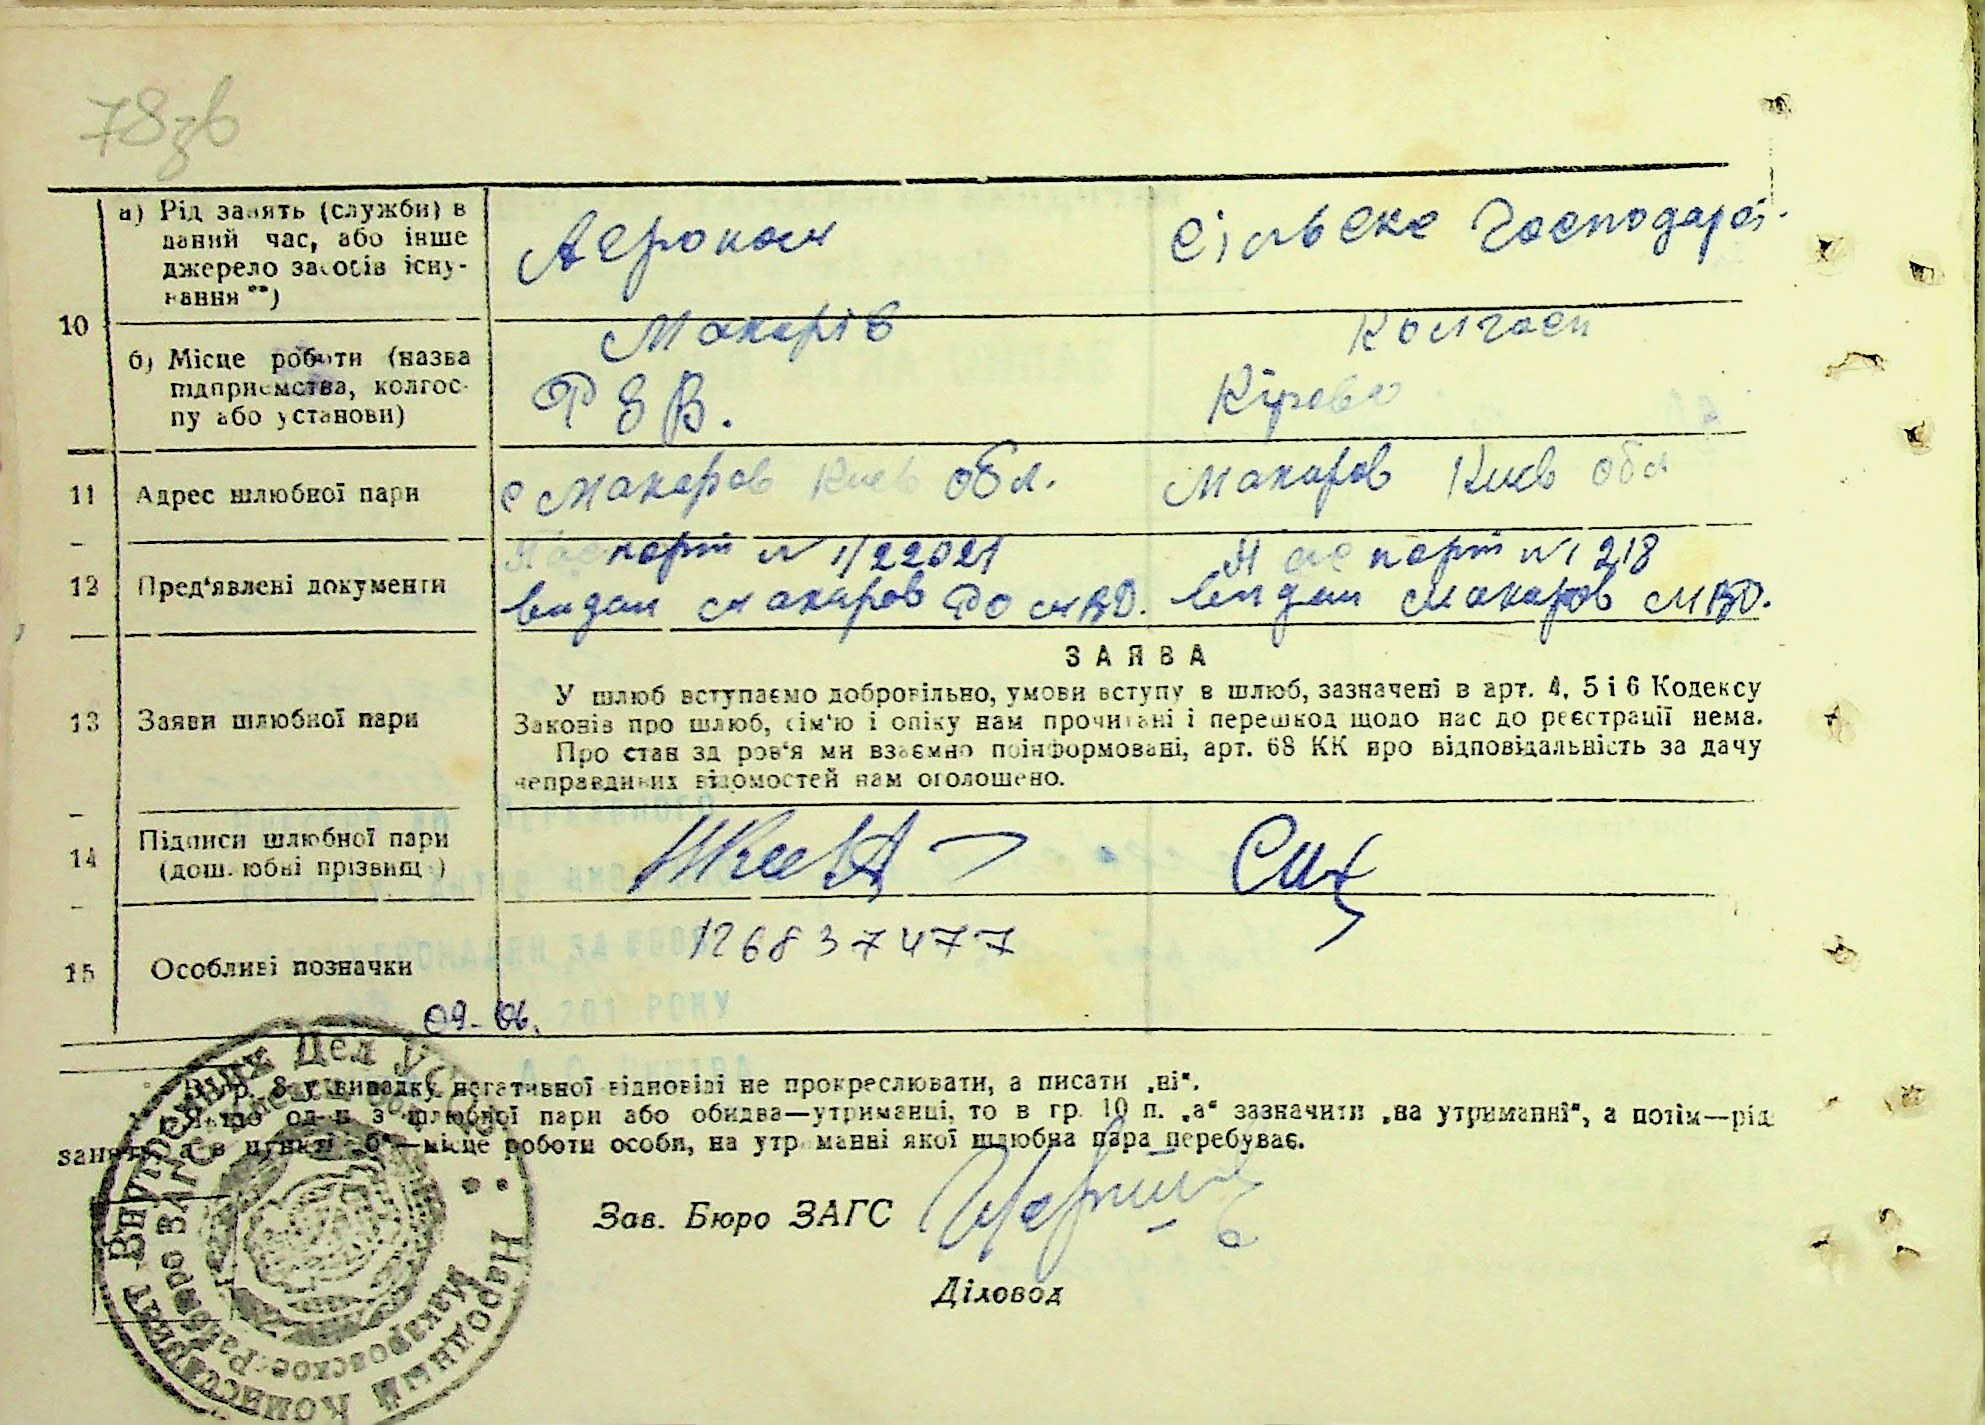 78зв
а) Рід занять (служби) в
даний час, або інше
джерело засобів існу-
вання **)
Агроном
Сільске Господарст.
10
б) Місце роботи (назва
підприємства, колгос-
пу або установи)
Макарів
Р З В.
Колгосп
Кірова
11 Адрес шлюбної пари
с Макаров Киев обл.
Макаров Киев обл
12 Пред'явлені документи
Паспорт № 1/22021
видан Макаров РО МВД.
Паспорт № 1 218
видан Макаров МВД.
ЗАЯВА
13 Заяви шлюбної пари
У шлюб вступаємо добровільно, умови вступу в шлюб, зазначені в арт. 4, 5 і 6 Кодексу
Законів про шлюб, сім'ю і опіку нам прочитані і перешкод щодо нас до реєстрації нема.
Про стан здоров'я ми взаємно поінформовані, арт. 68 КК про відповідальність за дачу
неправдивих відомостей нам оголошено.
14 Підписи шлюбної пари
(дошлюбні прізвища)
15 Особливі позначки
126837477
09-06.
201 РОКУ
у випадку негативної відповіді не прокреслювати, а писати „ні".
Якщо один з шлюбної пари або обидва—утриманці, то в гр. 10 п. „а" зазначити „на утриманні", а потім—рід
занять, а в пункті „б"—місце роботи особи, на утриманні якої шлюбна пара перебуває.
Зав. Бюро ЗАГС
Діловод
Народный Комиссариат Внутренних Дел УССР
Макаровское Райбюро ЗАГС